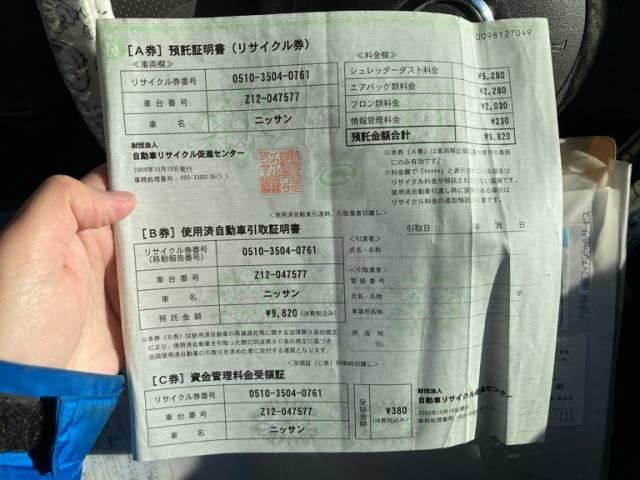 0098127049
[A券] 預託証明書(リサイクル券)
≪車両欄≫
リサイクル券番号 0510-3504-0761
車台番号 Z12-047577
車名 ニッサン
≪料金欄≫
シュレッダーダスト料金 ¥5,280
エアバッグ類料金 ¥2,280
フロン類料金 ¥2,030
情報管理料金 ¥230
預託金額合計 ¥9,820
財団法人
自動車リサイクル促進センター
2009年10月19日発行
※本券(A券)は車両欄記載の車台番号の車両
にのみ有効です。
※料金欄で「*****」と表示されている項目は
リサイクル料金が預託されていない装備です。
使用済自動車引渡し時に装備がある場合には
リサイクル料金の追加預託が必要です。
<使用済自動車引渡時、引取業者切離し>
[B券] 使用済自動車引取証明書
リサイクル券番号
(移動報告番号)
0510-3504-0761
車台番号 Z12-047577
車名 ニッサン
預託金額 ¥9,820 (消費税込み)
引取日: 年 月 日
≪引渡者≫
氏名・名称
≪引取業者≫
登録番号
氏名・名称 印
事業所名称
所在地
TEL
※本券(B券)は使用済自動車の再資源化等に関する法律第9条の規定に
より、使用済自動車を引取った際に同法第80条の規定に基づき
当該使用済自動車の引取りを求めた者に交付する書面となります。
<受領証(C券)利用時切離し>
[C券] 資金管理料金受領証
リサイクル券番号 0510-3504-0761
車台番号 Z12-047577
車名 ニッサン
受領金額 ¥380
(消費税込み)
財団法人
自動車リサイクル促進センター
2009年10月19日発行